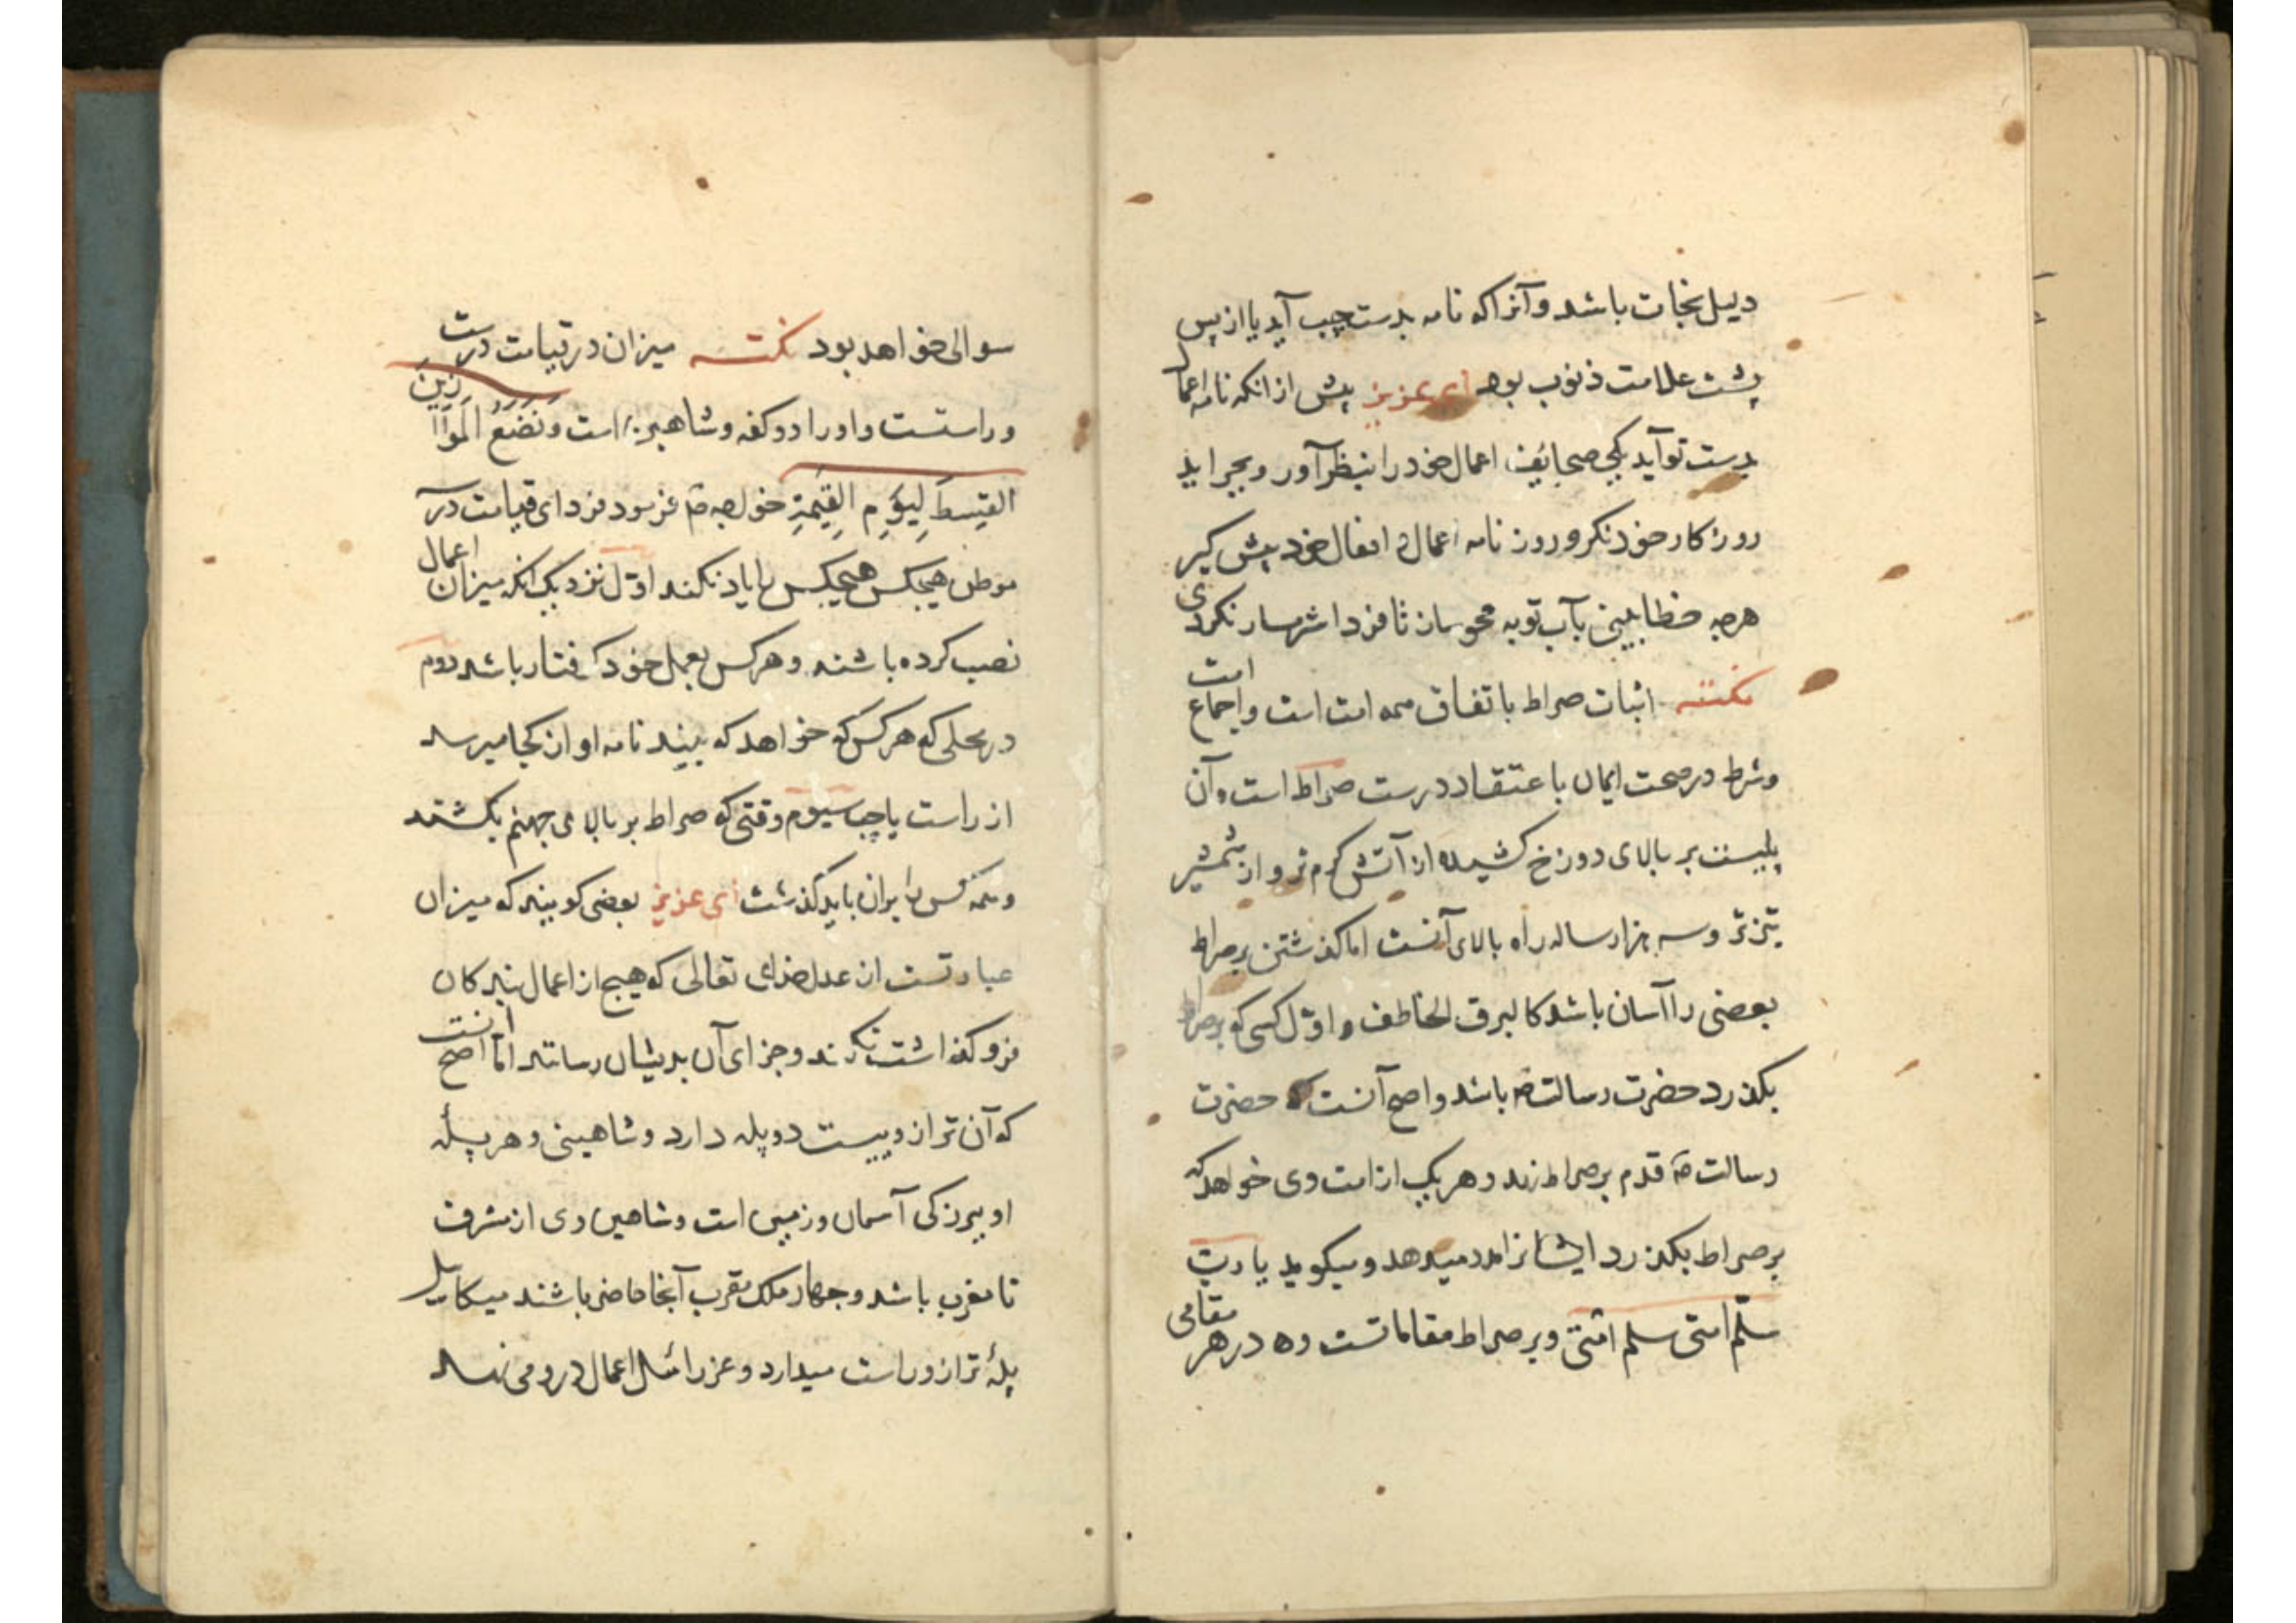 دلیل نجات باشد و آنرا که نامه بدست چپ آید یا از پس
پشت علامت ذنوب بود ای عزیز پیش از انکه نامه اعمال
بدست تو آید یکی صحایف اعمال خود را بنظر آور و بجراید
روزکار خود نکر و روزنامه اعمال و افعال خود پیش کیر
هرچه خطا بینی بآب توبه محو ساز تا فردا شرمسار نکردی
نکته اثبات صراط باتفاق همه امت است و اجماع امت
و شرط در صحت ایمان با عتقاد درست صراط است و آن
پلیست بر بالای دوزخ کشیده از آتش کرم تر و از شمشیر
تیزتر و سه هزار ساله راه بالای آنست اما کذشتن بر صراط
بعضی را آسان باشد کالبرق الخاطف و اوّل کسی که بر صراط
بکذرد حضرت رسالت ص باشد و اصح آنست که حضرت
رسالت ص قدم بر صراط زند و هر یک از امت وی خواهد که
بر صراط بکذرد ایشانرا مدد میدهد و میکوید یا ربّ
سلّم امتی سلم امّتی و بر صراط مقاماتست ده در هر مقامی
سوالی خواهد بود نکته میزان در قیامت درست
و راستست و او را دو کفه و شاهین است وَنَضَعُ المَوَازِینَ
القِسطَ لِیَوْمِ القِیٰمَةِ خواجه ص فرمود فردای قیامت در
موطن هیچکس هیچکس را یاد نکند اوّل نزدیک انکه میزان اعمال
نصب کرده باشند و هر کس بعمل خود کرفتار باشد دوم
در محلی که هر کس که خواهد که بیند نامه او از کجا میرسد
از راست یا چپ سیوم وقتی که صراط بر بالای جهنم بکشند
و همه کس را بران باید کذشت ای عزیز بعضی کویند که میزان
عبارتست از عدل خدای تعالی که هیچ از اعمال بندکان
فرو کذاشت نکند و جزای آن بدیشان رساند امّا اصح انست
که آن ترازوییست دو پله دارد و شاهینی و هر پلّه
او ببزرکی آسمان و زمین است و شاهین وی از مشرق
تا مغرب باشد و چهار ملک مقرب آنجا حاضر باشند میکاییل
پلهٔ ترازو راست میدارد و عزرائیل اعمال درو می نهد